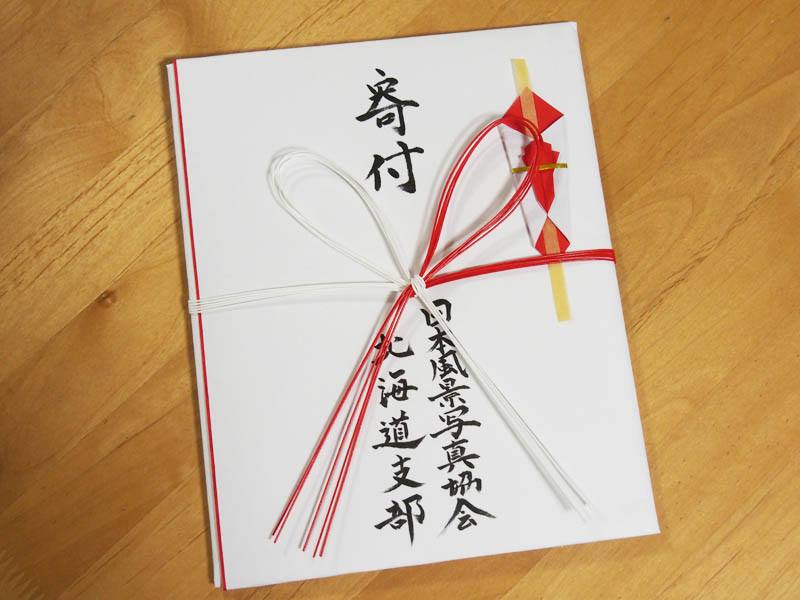 寄付
日本風景写真協会
北海道支部